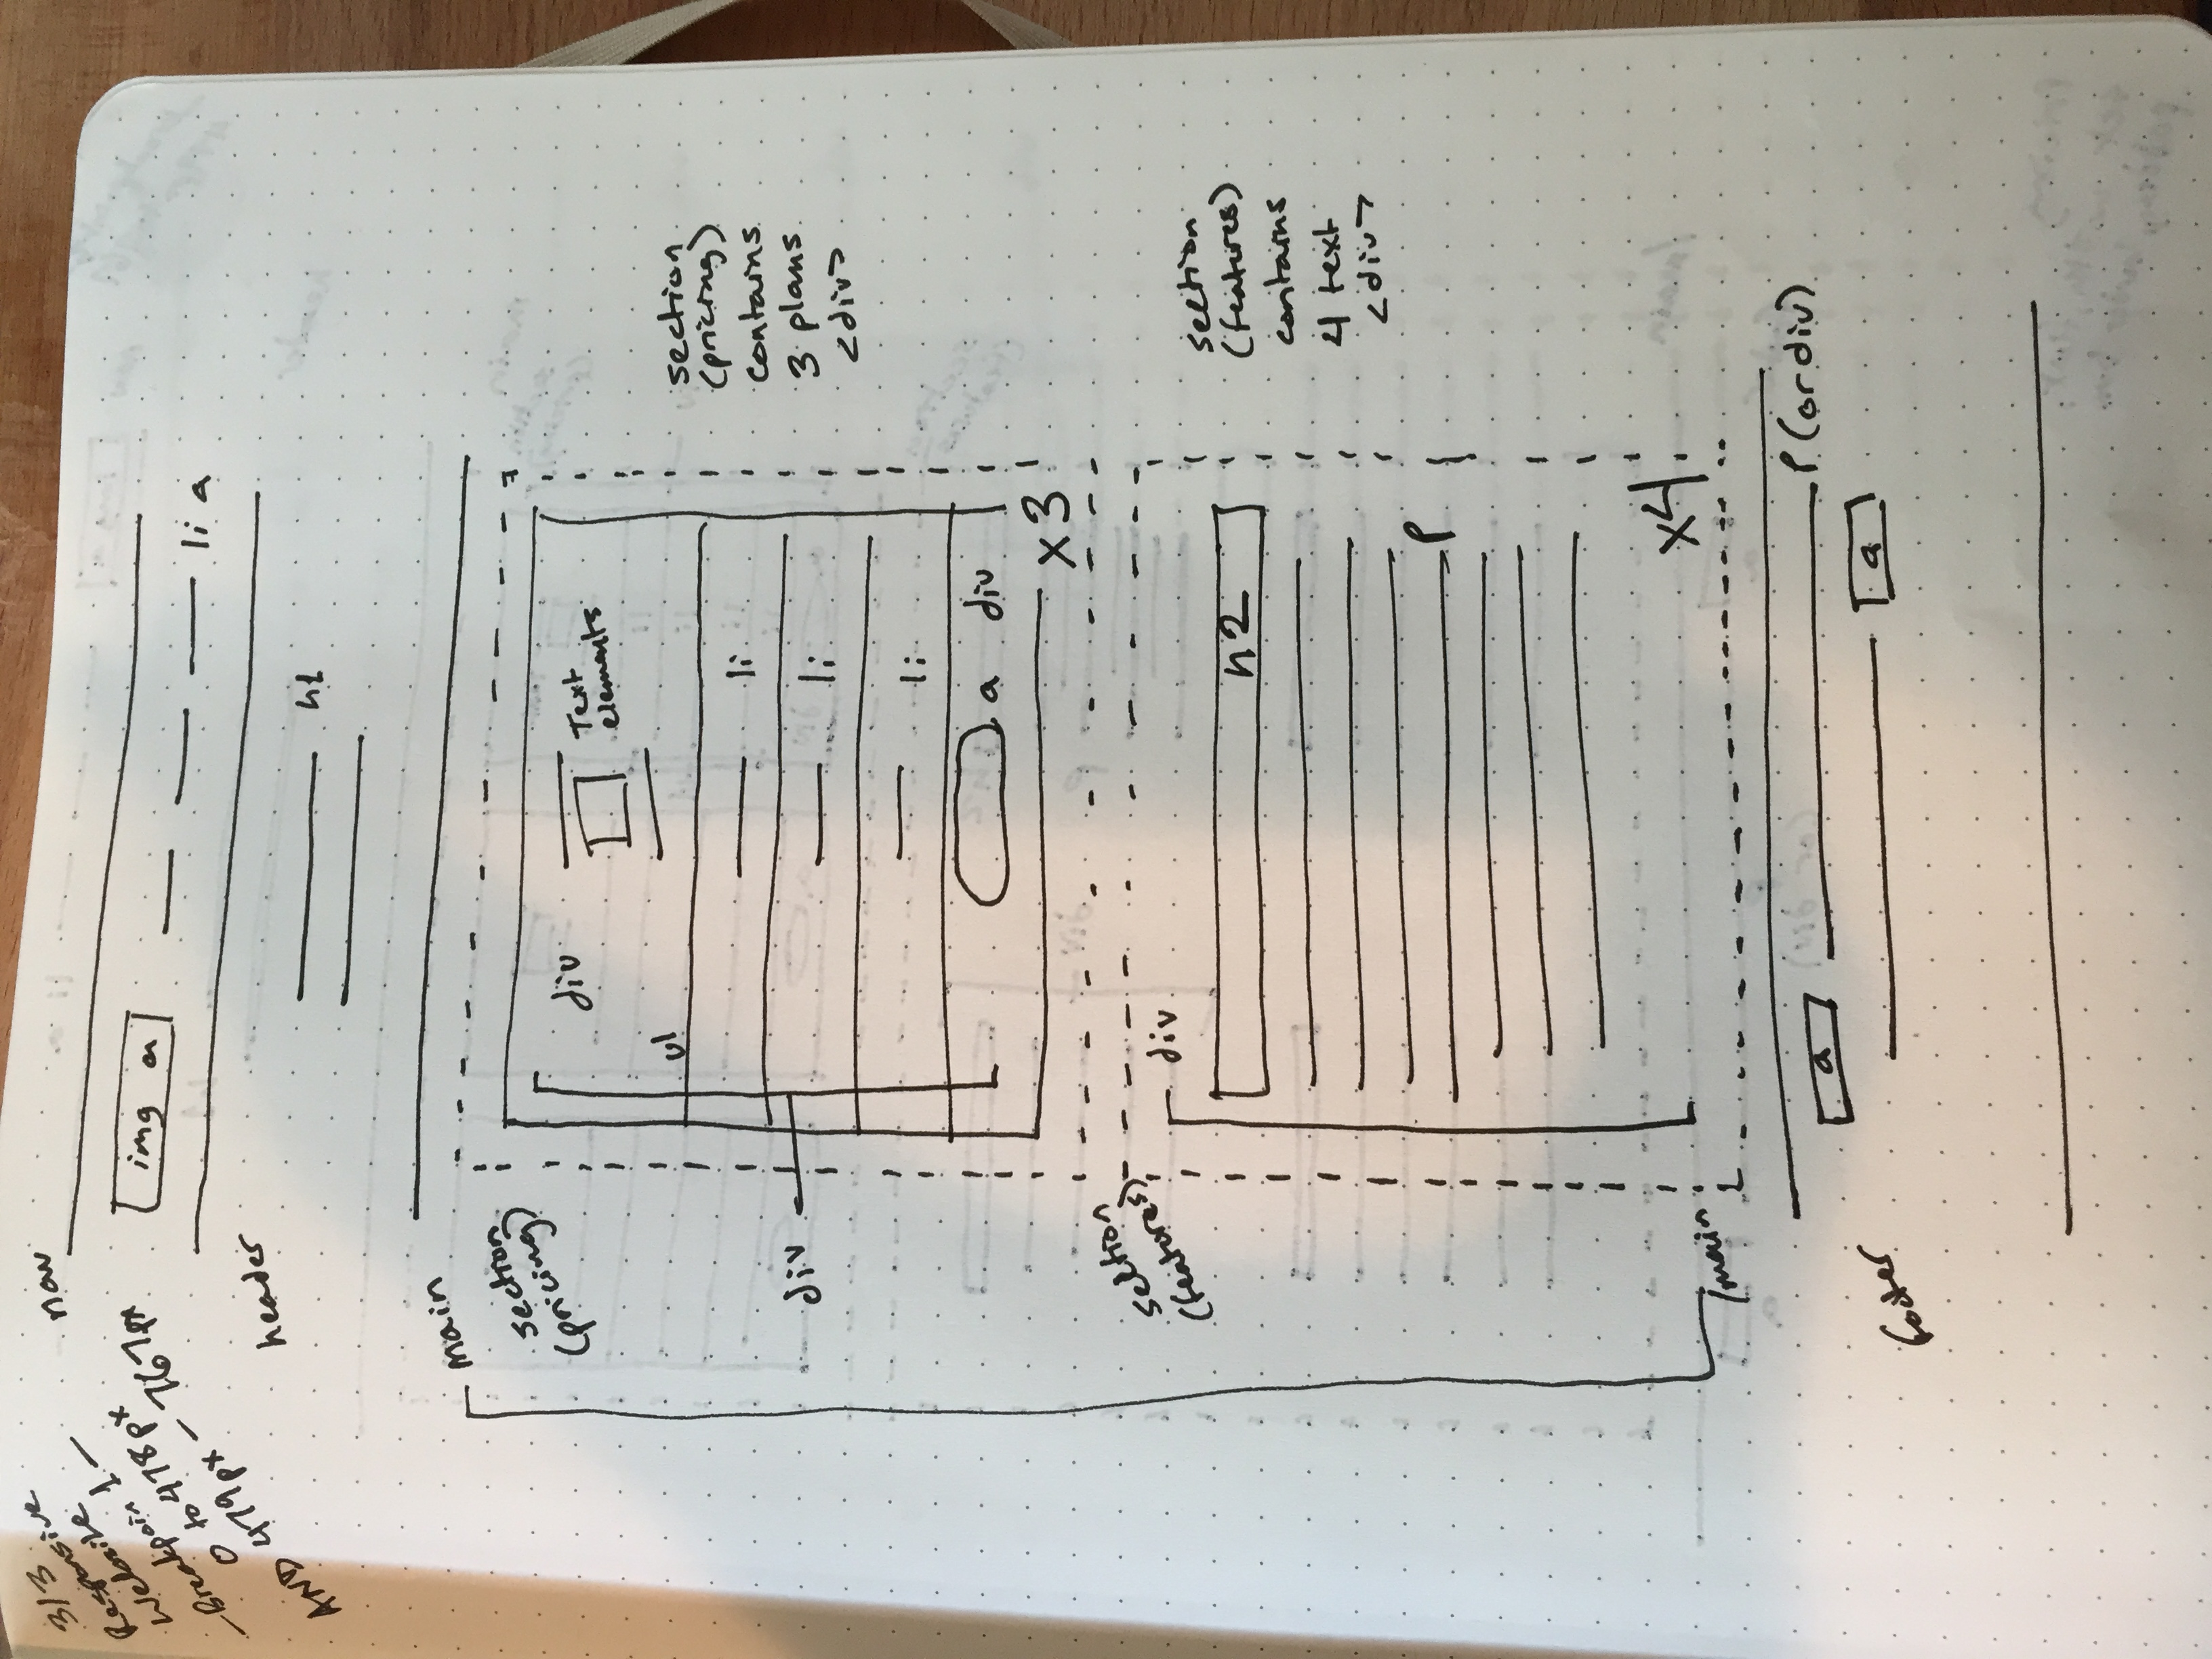 3/3
Responsive
Website
-Breakpoin 1 -
0 to 478px
AND 479px - 767px
nav
img a
li a
header
h1
main
section
(pricing)
div
Text
elements
ul
li
div
li
li
a div
x3
section
(pricing)
contains
3 plans
<div>
section
(features)
div
h2
p
x4
section
(features)
contains
4 text
<div>
/main
a
p (or div)
a
footer